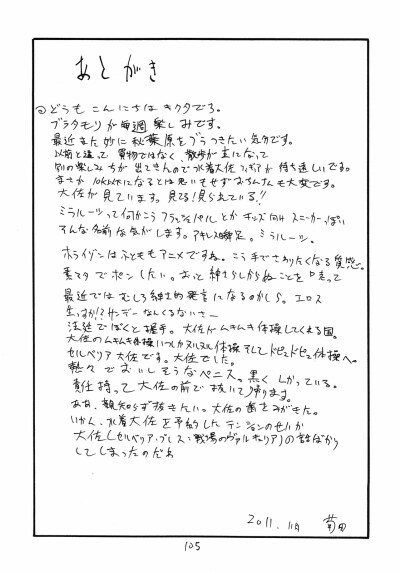 あとがき
どうもこんにちはキクタです。
ブラタモリが毎週楽しみです。
最近また妙に秋葉原をブラつきたい気分です。
以前と違って買物ではなく、散歩が主になって
別の楽しみ方が出てきたので水着大佐フィギアが待ち遠しいです。
まさか10K以下になるとは思いもせずおちんちんも大変です。
大佐が見ています。見てる!見られている!!
ミラルーツって何かこうフラッシュバルとかキッズ向けスニーカーっぽい
そんな名前な気がします。アキレス瞬足。ミラルーツ。
ホライゾンはふとももアニメですね。こう手でさわりたくなる質感。
素マタでポンしたい。おっと紳士らしからぬことを口走って
最近ではむしろ紳士的発言になるのかしら。エロス
法廷でぼくと握手。大佐がムキムキ体操してくれる国。
セルベリア大佐です。大佐でした。
熱々でおいしそうなペニス。黒くしかっている。
責任持って大佐の前で抜いて帰ります。
ああ、親知らず抜きたい。大佐の歯をみがきた。
いかん、水着大佐を予約したテンションのせいか
大佐(セルベリア・ブレス:戦場のヴァルキュリア)の話ばかり
してしまったのだわ
2011.11月 菊田
105